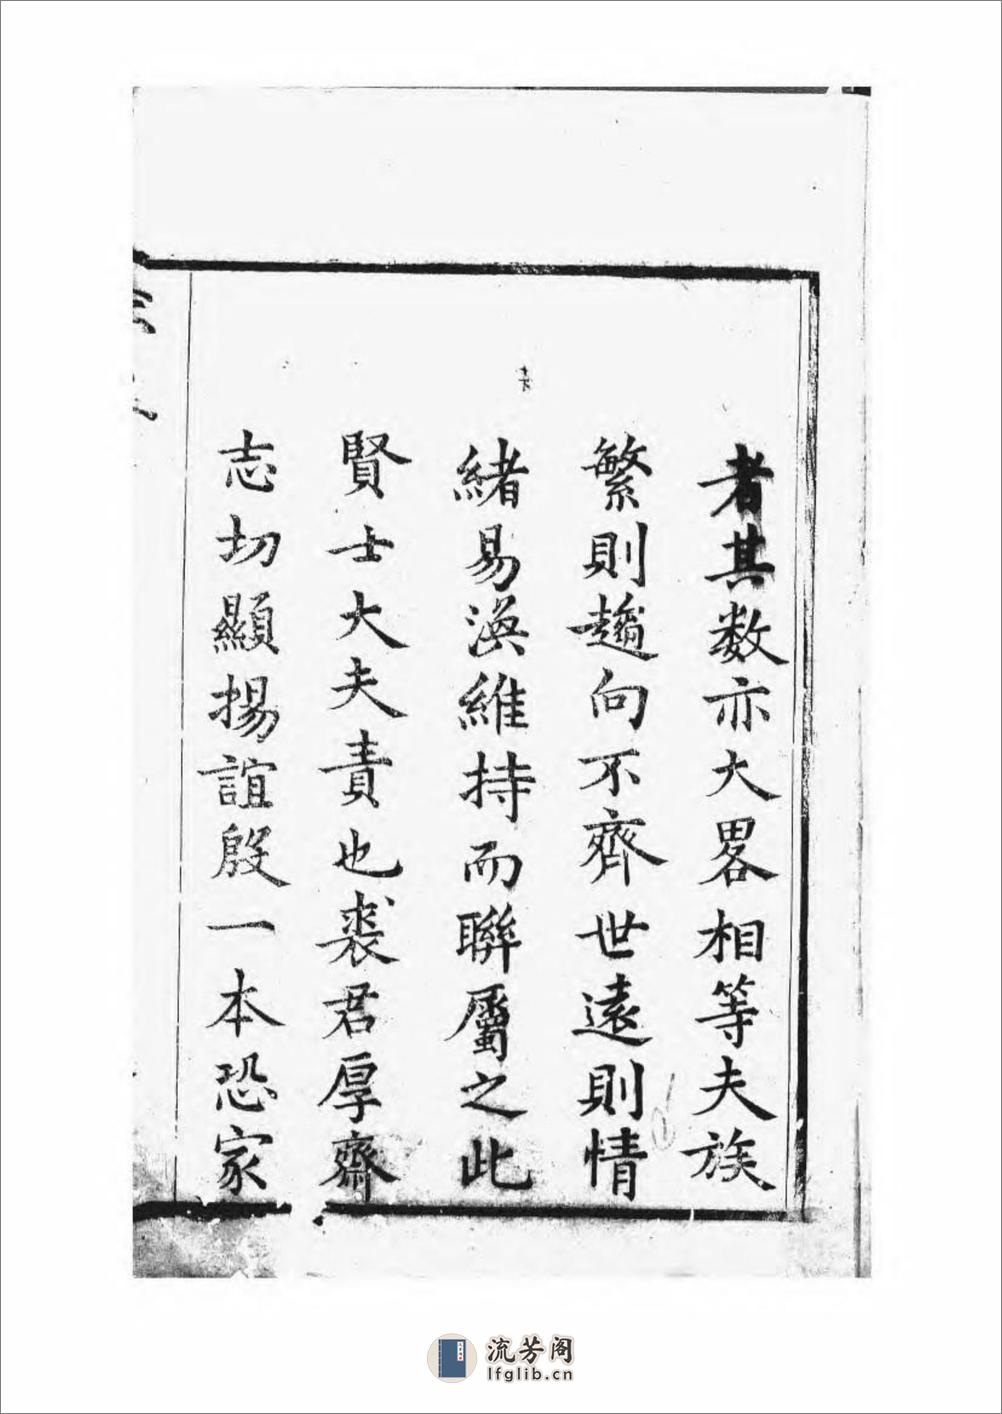 者其数亦大畧相等夫族
繁則趨向不齊世遠則情
緒易渙維持而聯屬之此
賢士大夫責也裘君厚齋
志切顯揚誼殷一本恐家
流芳阁
lfglib.cn